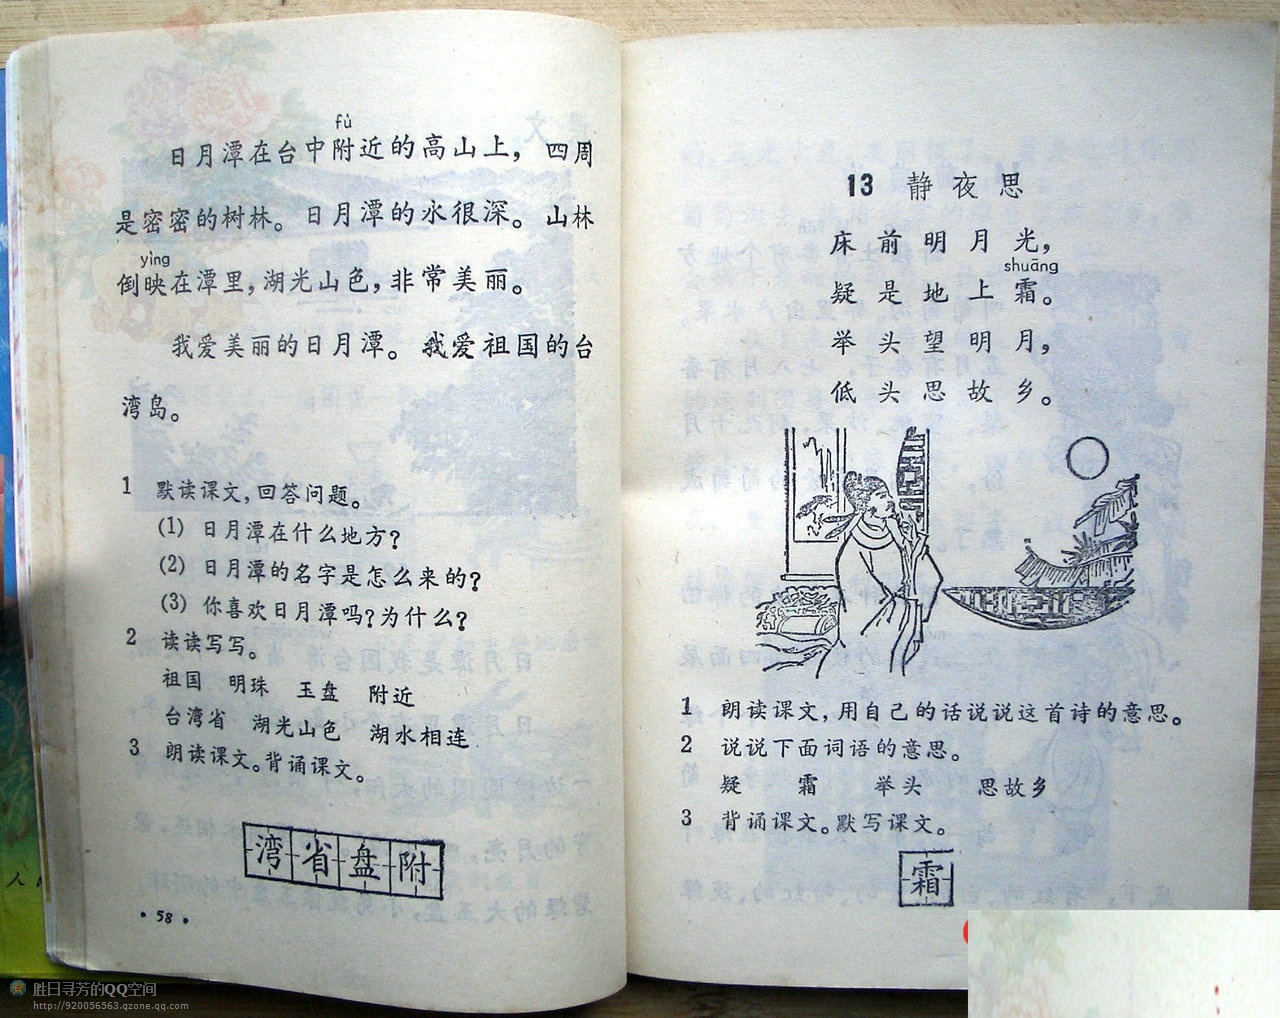 fù
日月潭在台中附近的高山上，四周
是密密的树林。日月潭的水很深。山林
yìng
倒映在潭里，湖光山色，非常美丽。
我爱美丽的日月潭。我爱祖国的台
湾岛。
1 默读课文，回答问题。
(1) 日月潭在什么地方？
(2) 日月潭的名字是怎么来的？
(3) 你喜欢日月潭吗？为什么？
2 读读写写。
祖国 明珠 玉盘 附近
台湾省 湖光山色 湖水相连
3 朗读课文。背诵课文。
湾省盘附
·58·
13 静夜思
床前明月光，
shuāng
疑是地上霜。
举头望明月，
低头思故乡。
1 朗读课文，用自己的话说说这首诗的意思。
2 说说下面词语的意思。
疑 霜 举头 思故乡
3 背诵课文。默写课文。
霜
胜日寻芳的QQ空间
http://920056563.qzone.qq.com